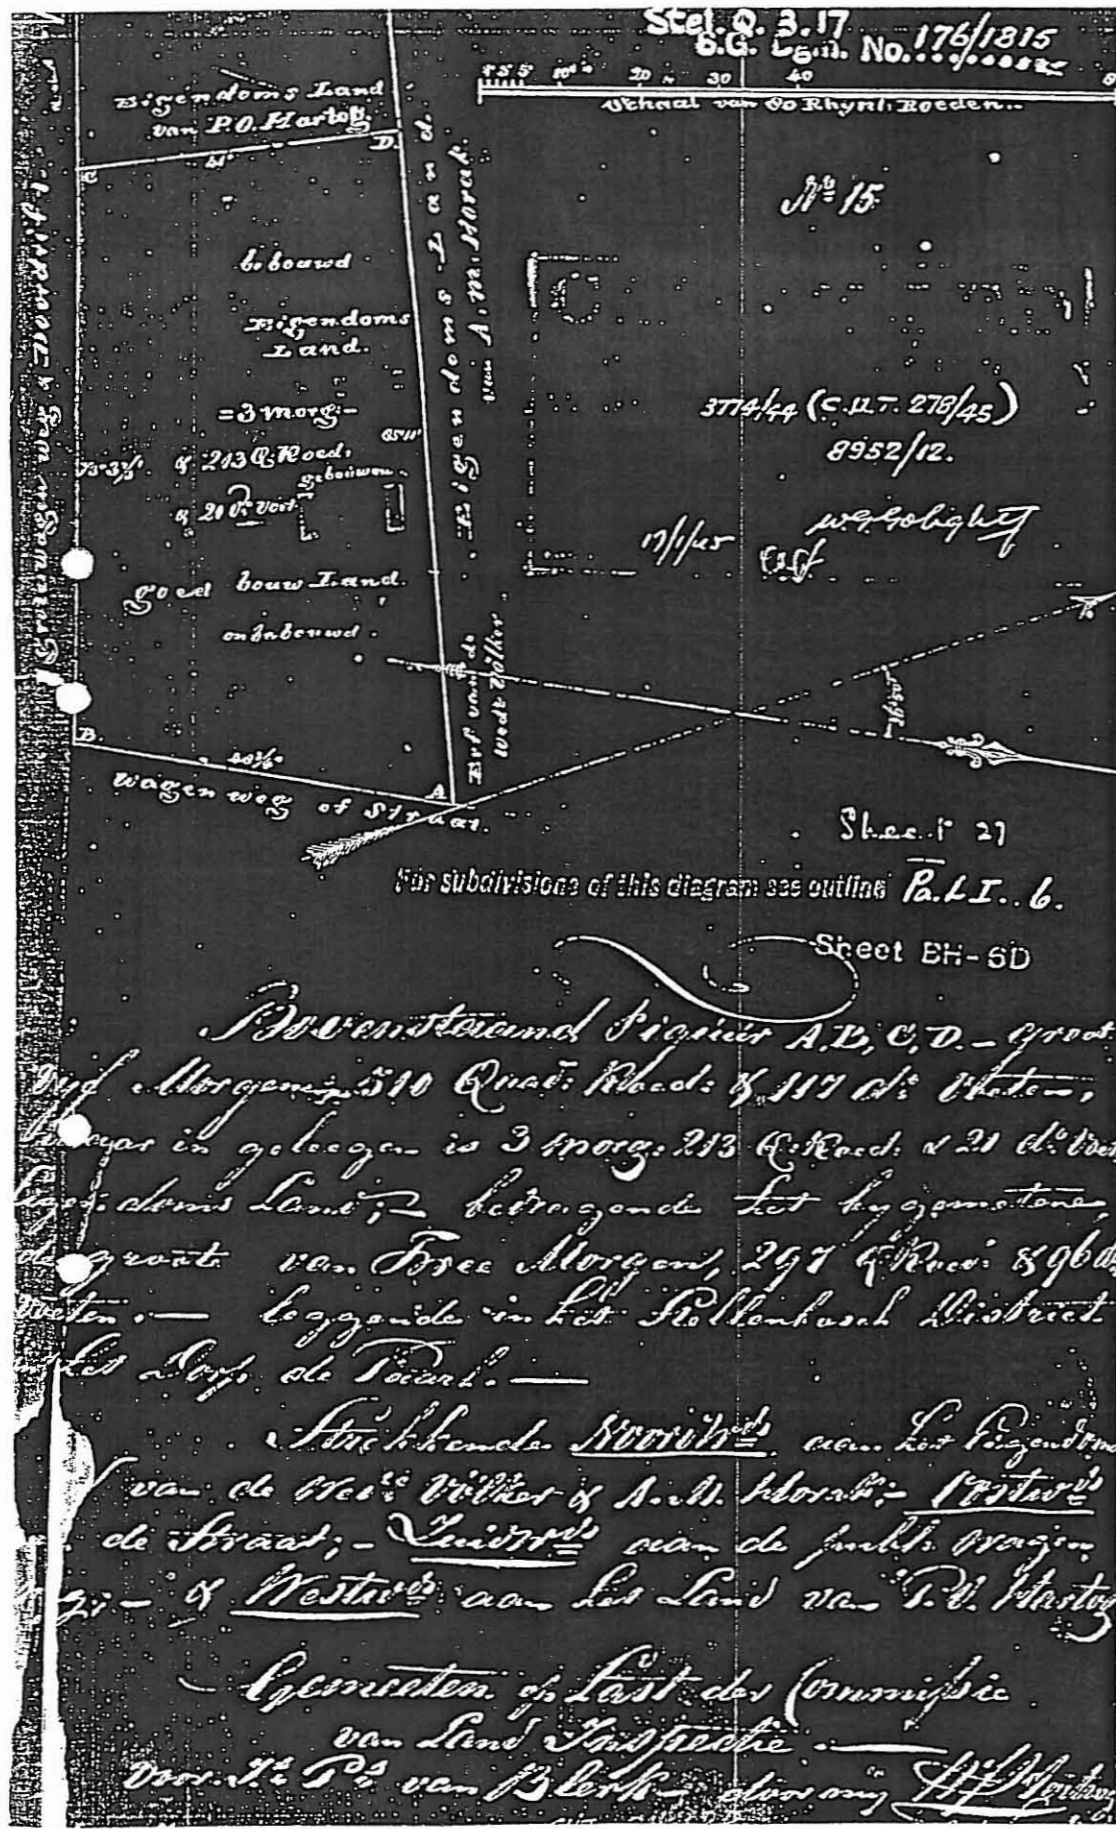 Stel. Q. 3.17
S.G. Dgm. No. 176/1815
10
20
30
40
Schaal van 80 Rhynl. Roeden.
Eigendoms Land
van P.O. Hartog.
C
D.
41°
No 15
bebouwd
Eigendoms
Land.
= 3 morg:
& 213 Q. Roed.
& 20 Do voet
gebouwen
goed bouw Land.
onbebouwd.
Eigendoms Land
van A.M. Horak.
Erf van de
Wedt Völker
3774/44 (C.U.T. 278/45)
8952/12.
B.
A
Wagen weg of Straat.
Sheet 27
For subdivisions of this diagram see outline Pa.L I.. 6.
Sheet BH-6D
Bovenstaand Figuur A,B,C,D. – groot
Vyf Morgen, 510 Quad: Roed: & 117 do Voeten,
waar in geleegen is 3 morg: 213 Q: Roed: & 21 do Voet
Land; – bedragende het bygemetene
de groote van Twee Morgen, 297 Q Roed: & 96 do
Voeten. — leggende in het Stellenbosch District
in het Dorp de Paarl. —
Strekkende Noordwds aan het Eigendoms
van de Völker & A.M. Horak; – Oostwds
de Straat; – Zuidwds aan de publ: wagen
weg; – & Westwds aan het Land van P.O. Hartog
Gemeeten op Last der Commissie
van Land Inspectie. —
Voor van Blerk – door my